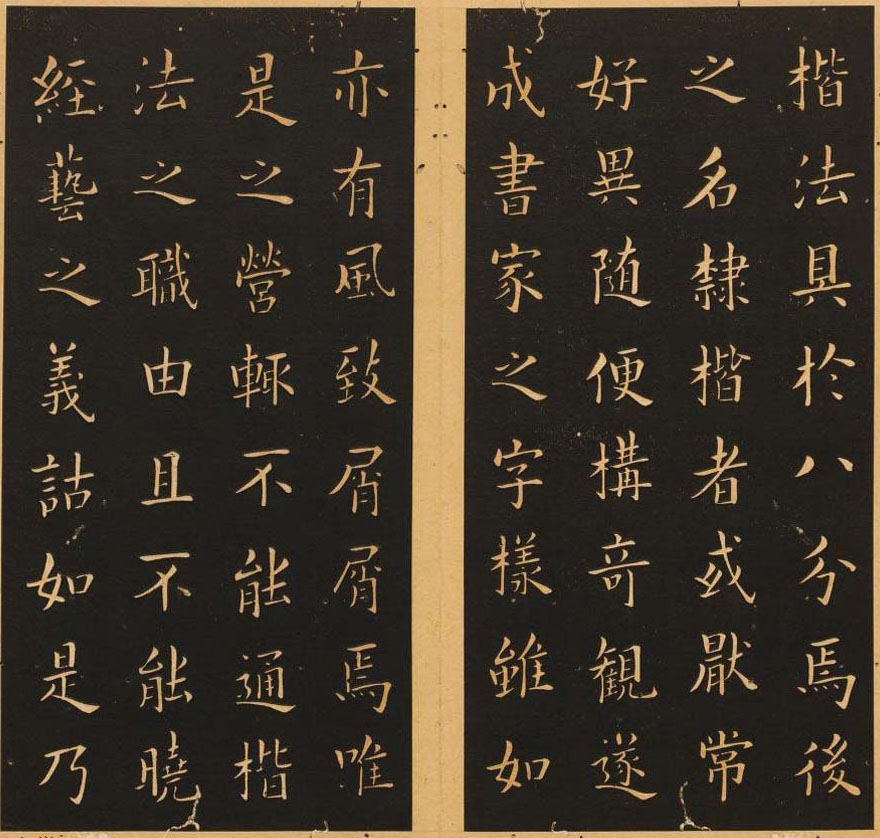 楷法具於八分焉後
之名隸楷者或厭常
好異随便構竒觀遂
成書家之字様雖如
亦有風致屑屑焉唯
是之營輙不能通楷
法之職由且不能曉
經藝之義詁如是乃